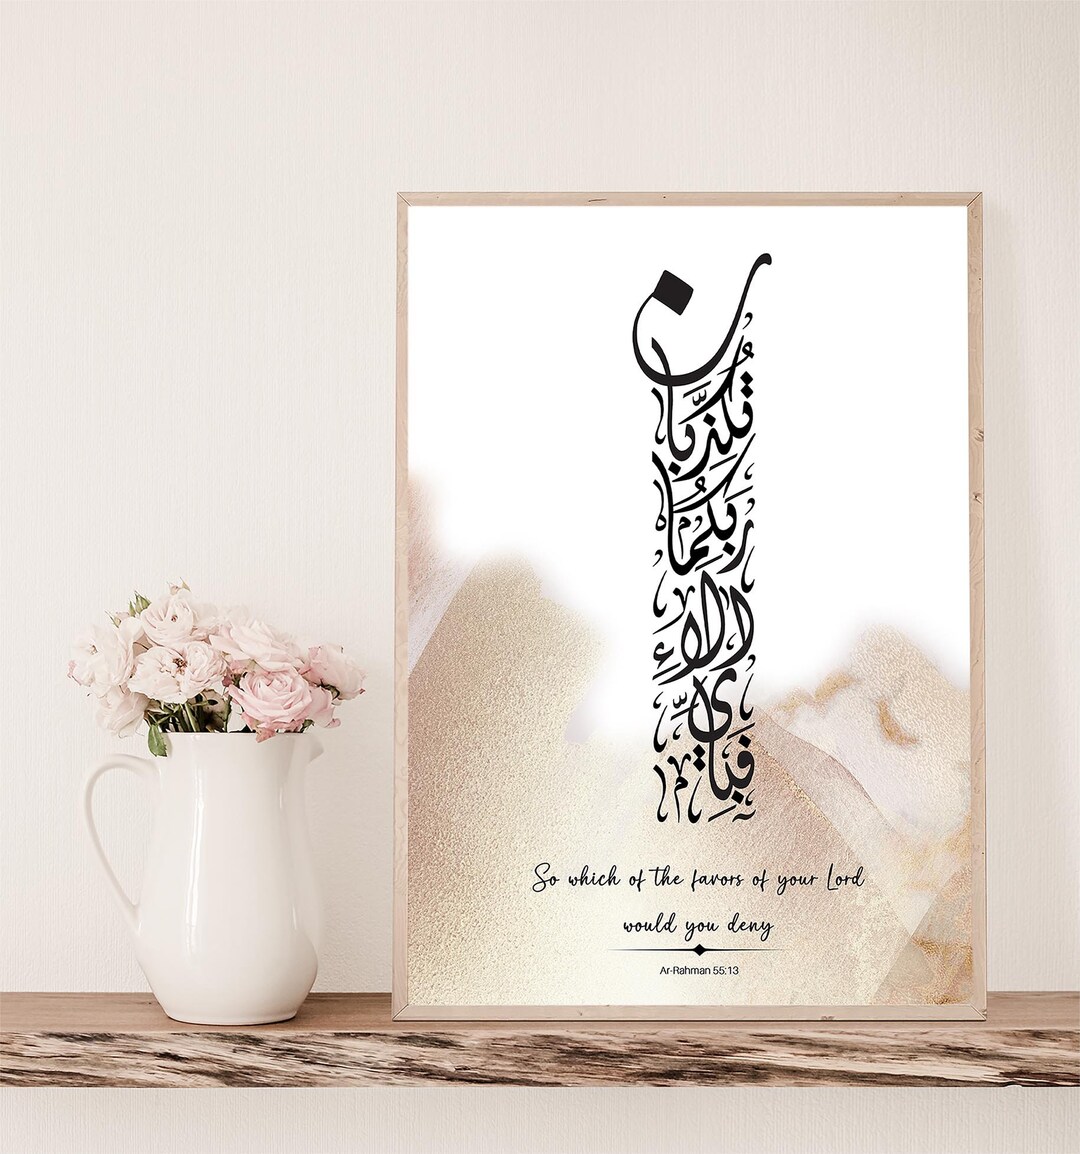 فَبِأَيِّ
آلَاءِ
رَبِّكُمَا
تُكَذِّبَانِ
So which of the favors of your Lord
would you deny
Ar-Rahman 55:13